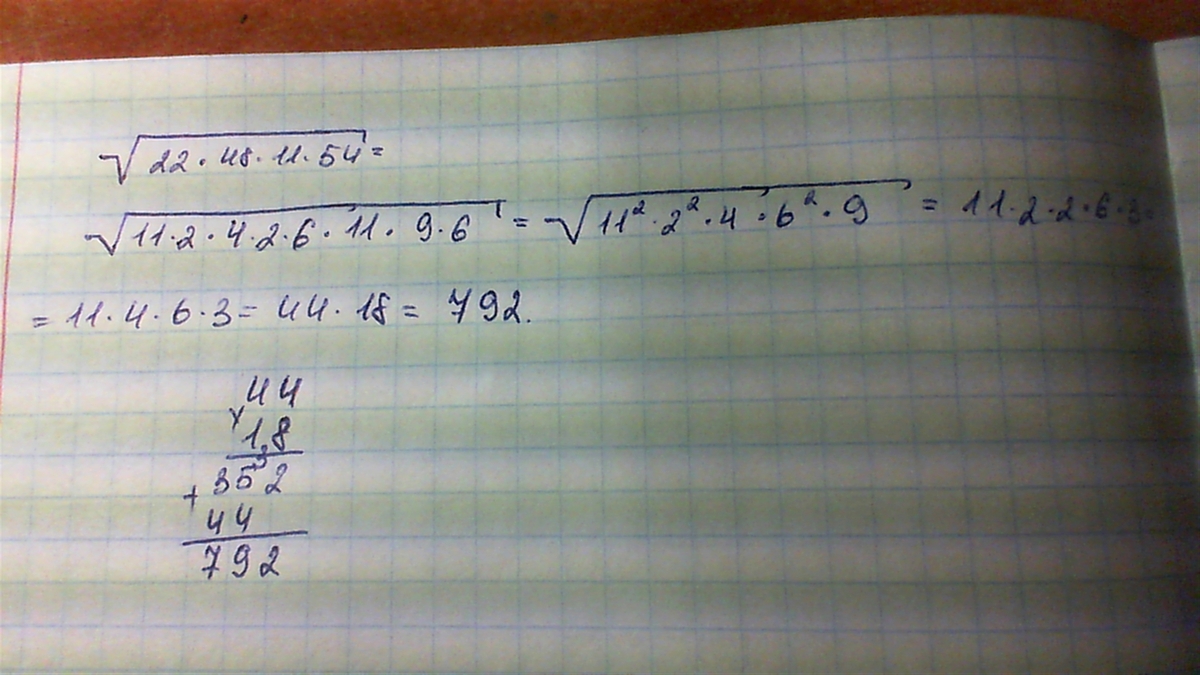 √22·48·11·54 =
√11·2·4·2·6·11·9·6 = √11²·2²·4·6²·9 = 11·2·2·6·3=
= 11·4·6·3 = 44·18 = 792.
44
×
18
3
352
+
44
792